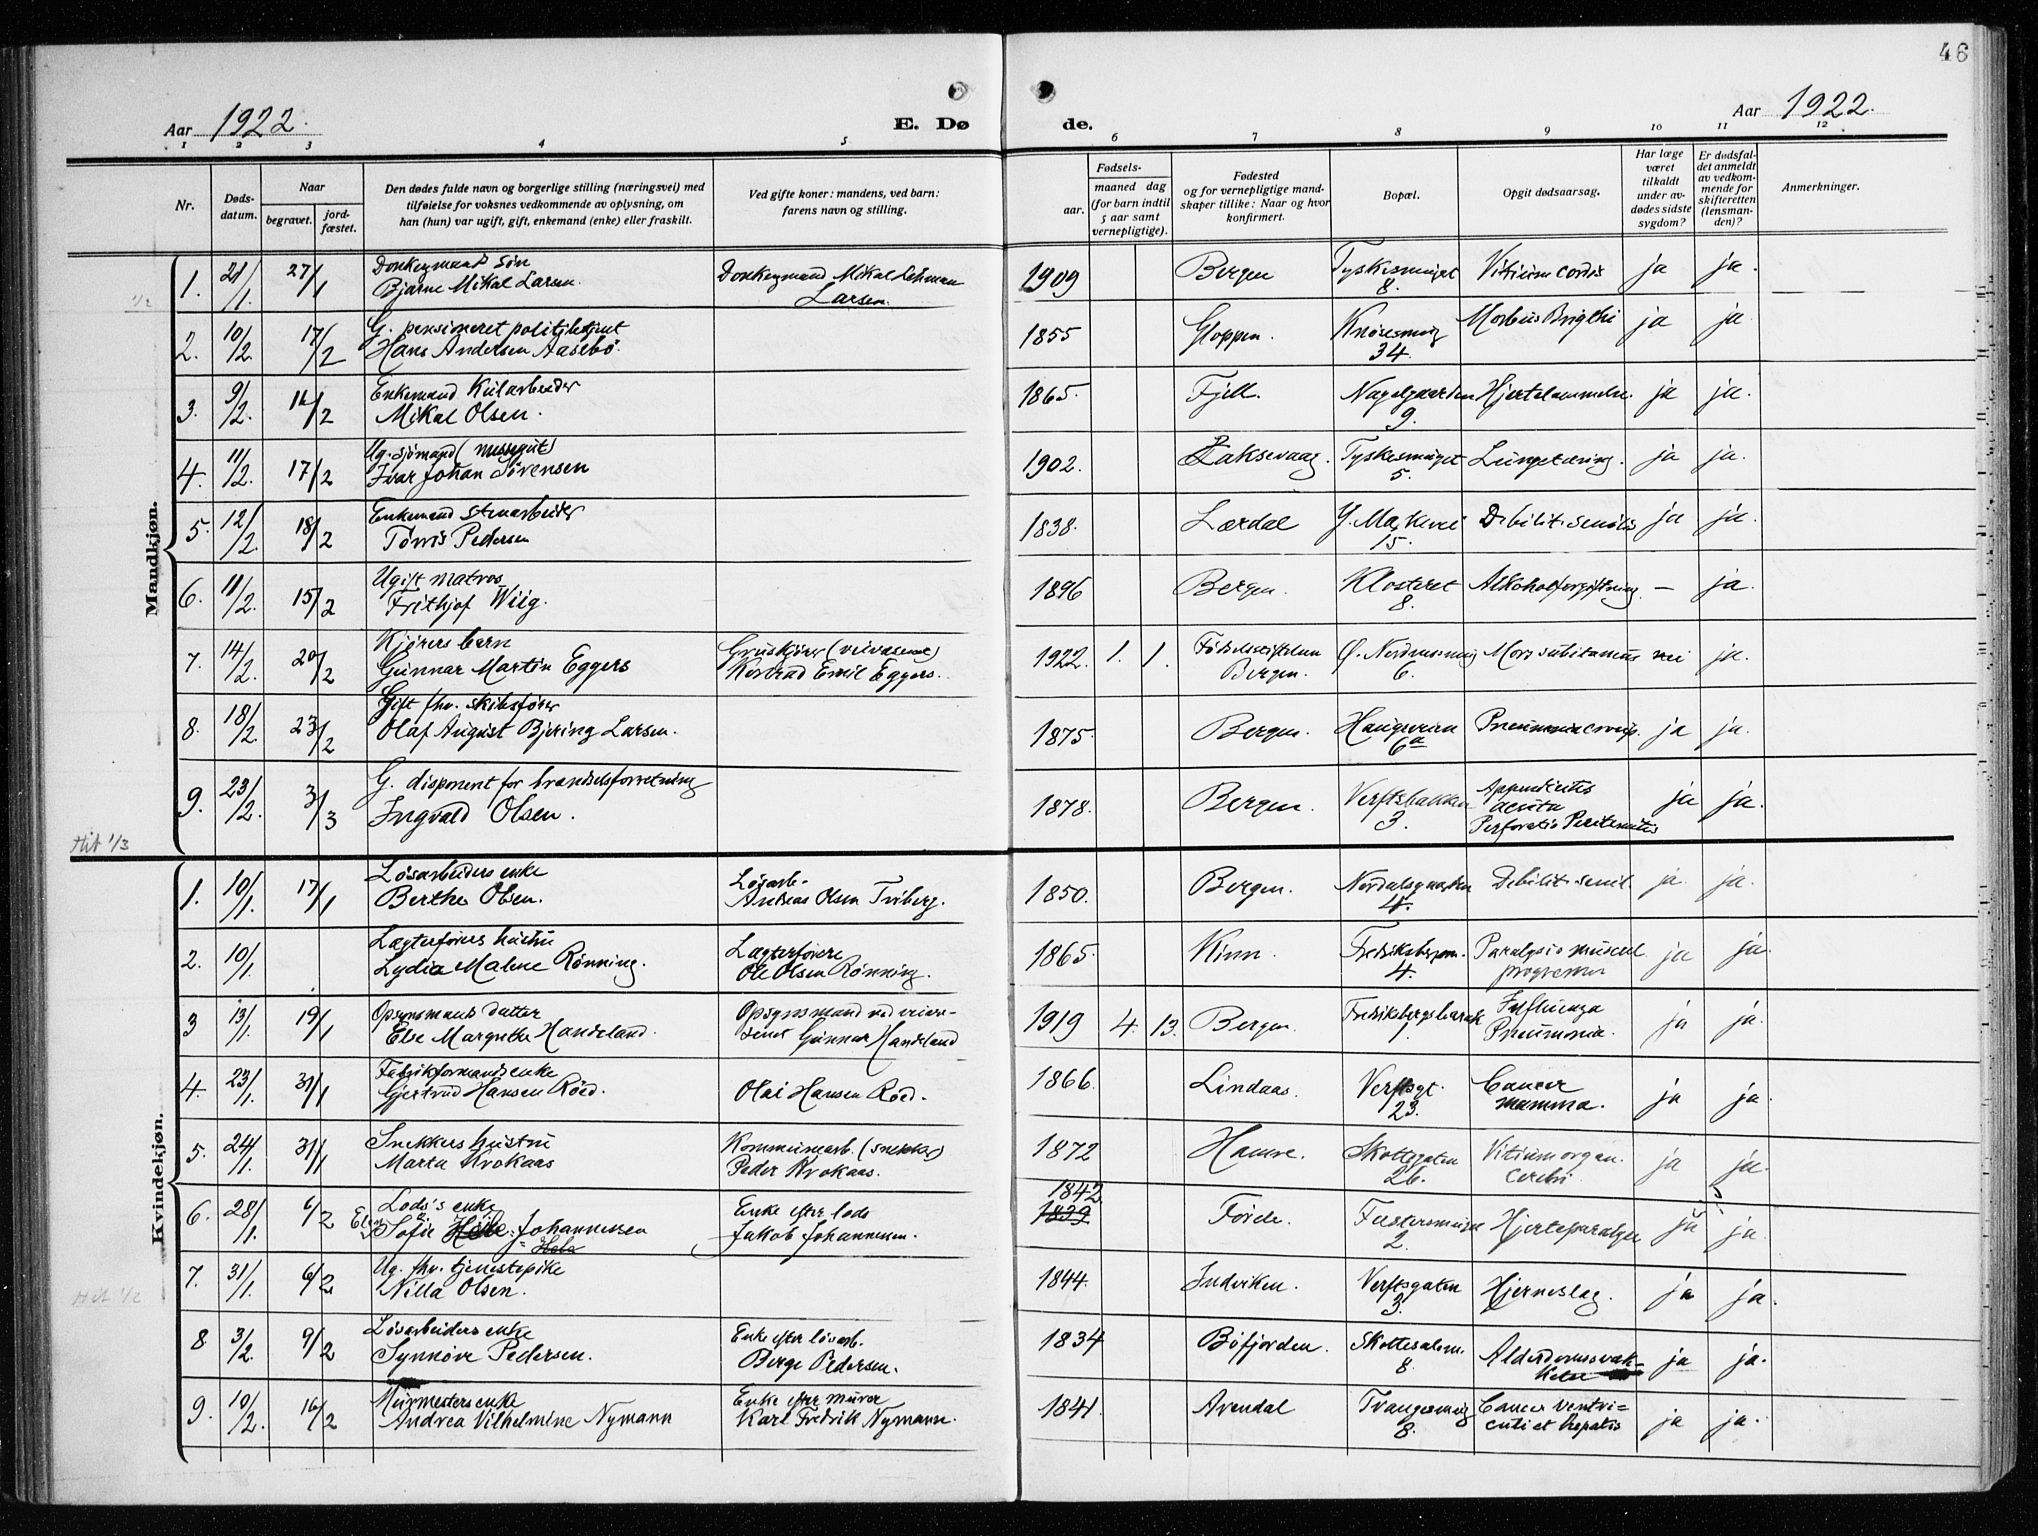 46
Aar 1922.
E. Dø
de.
Aar 1922.
1 2 3 4 5 6 7 8 9 10 11 12
Nr.
Døds-
datum.
Naar
begravet.
jord-
fæstet.
Den dødes fulde navn og borgerlige stilling (næringsvei) med
tilføielse for voksnes vedkommende av oplysning, om
han (hun) var ugift, gift, enkemand (enke) eller fraskilt.
Ved gifte koner: mandens, ved barn:
farens navn og stilling.
Fødsels-
aar.
maaned dag
(for barn indtil
5 aar samt
vernepligtige).
Fødested
og for vernepligtige mand-
skaper tillike: Naar og hvor
konfirmert.
Bopæl.
Opgit dødsaarsag.
Har læge
været
tilkaldt
under av-
dødes sidste
sygdom?
Er dødsfal-
det anmeldt
av vedkom-
mende for
skifteretten
(lensman-
den)?
Anmerkninger.
Mandkjøn.
1/2
1. 21/1. 27/1 Donkeymands søn
Bjarne Mikal Larsen. Donkeymand Mikal Lehman
Larsen. 1909 Bergen Tyskesmuget
8. Vitium cordis ja ja.
2. 10/2. 17/2 G. pensioneret politibetjent
Hans Andersen Aasebø. 1855 Gloppen. Knøsesmug
34. Morbus Brigthi ja ja.
3. 9/2. 16/2 Enkemand Kularbeider
Mikal Olsen. 1865. Fjell. Nagelgaarden
9. Hjertelammelse. ja ja.
4. 11/2. 17/2 Ug. sjømand (messegut)
Ivar Johan Sørensen 1902. Laksevaag. Tyskesmuget
5. Lungetæring. ja ja.
5. 12/2. 18/2 Enkemand stenarbeider
Tørris Pedersen 1838. Lærdal Y. Markevei
15. Debilit. senilis ja ja.
6. 11/2. 15/2 Ugift matros
Frithjof Wiig. 1896 Bergen. Klosteret
8. Alkoholforgiftning. — ja.
7. 14/2. 20/2 Kjørers barn
Gunnar Martin Eggers Gruskjører (veivæsenet)
Konrad Emil Eggers. 1922. 1. 1. Fødselsstiftelsen
Bergen. Ø. Nordnesmug
6. Mors subitanus nei ja.
8. 18/2. 23/2 Gift fhv. skibsfører
Olaf August Bjering Larsen. 1875. Bergen. Haugeveien
6a Pneumonia croup. ja ja.
9. 23/2. 3/3 G. disponent for brændselsforretning
Ingvald Olsen. 1878. Bergen. Verftsbakken
3. Appendicitis
acuta
Perforatio Peritonitis ja ja.
Hit 1/3
Kvindekjøn.
1. 10/1. 17/1 Løsarbeiders enke
Berthe Olsen. Løsarb.
Andreas Olsen Triberg. 1850. Bergen. Nordalsgaarden
4. Debilit. senil. ja. ja.
2. 10/1. Lægterførers hustru
Lydia Malene Rønning. Lægterfører
Ole Olsen Rønning. 1865. Kinn. Fredriksbergsm.
4. Paralysis muscul
progressiva ja ja.
3 13/1. 19/1 Opsynsmands datter
Else Margrethe Handeland. Opsynsmand ved veivæ-
senet Gunnar Handeland 1919 4. 13. Bergen. Fredriksbergsbarak
1. Influenza
Pneumonia. ja ja.
4. 23/1. 31/1 Fabrikformands enke
Gjertrud Hansen Røed. Olai Hansen Røed. 1866. Lindaas. Verftsgt.
23. Cancer
mamma. ja ja.
5. 24/1. 31/1 Snekkers hustru
Marta Krokaas Kommunearb. (snekker)
Peder Krokaas. 1872 Hamre. Skottegaten
26. Vitium organ.
cerebri ja ja.
6. 28/1. 6/2 Lods's enke
Elen
Sofie Johannessen
Enke efter lods
Jakob Johannessen. 1842
1839 Førde. Fæstersmuget
2. Hjerteparalyse ja ja.
7. 31/1. 6/2 Ug. fhv. tjenestepike
Nilla Olsen. 1844. Indviken. Verftsgaten
3. Hjerneslag. ja ja.
Hit 1/2
8 3/2. 9/2 Løsarbeiders enke
Synnøve Pedersen. Enke efter løsarb.
Berge Pedersen. 1834 Bøfjorden. Skottesalem.
8. Alderdomssvak-
kelse ja ja.
9. 10/2. 16/2 Murmesters enke
Andrea Vilhelmine Nymann Enke efter murer
Karl Fredrik Nymann. 1841. Arendal Trangesmug
8. Cancer ventri-
culi et hepatis ja ja.